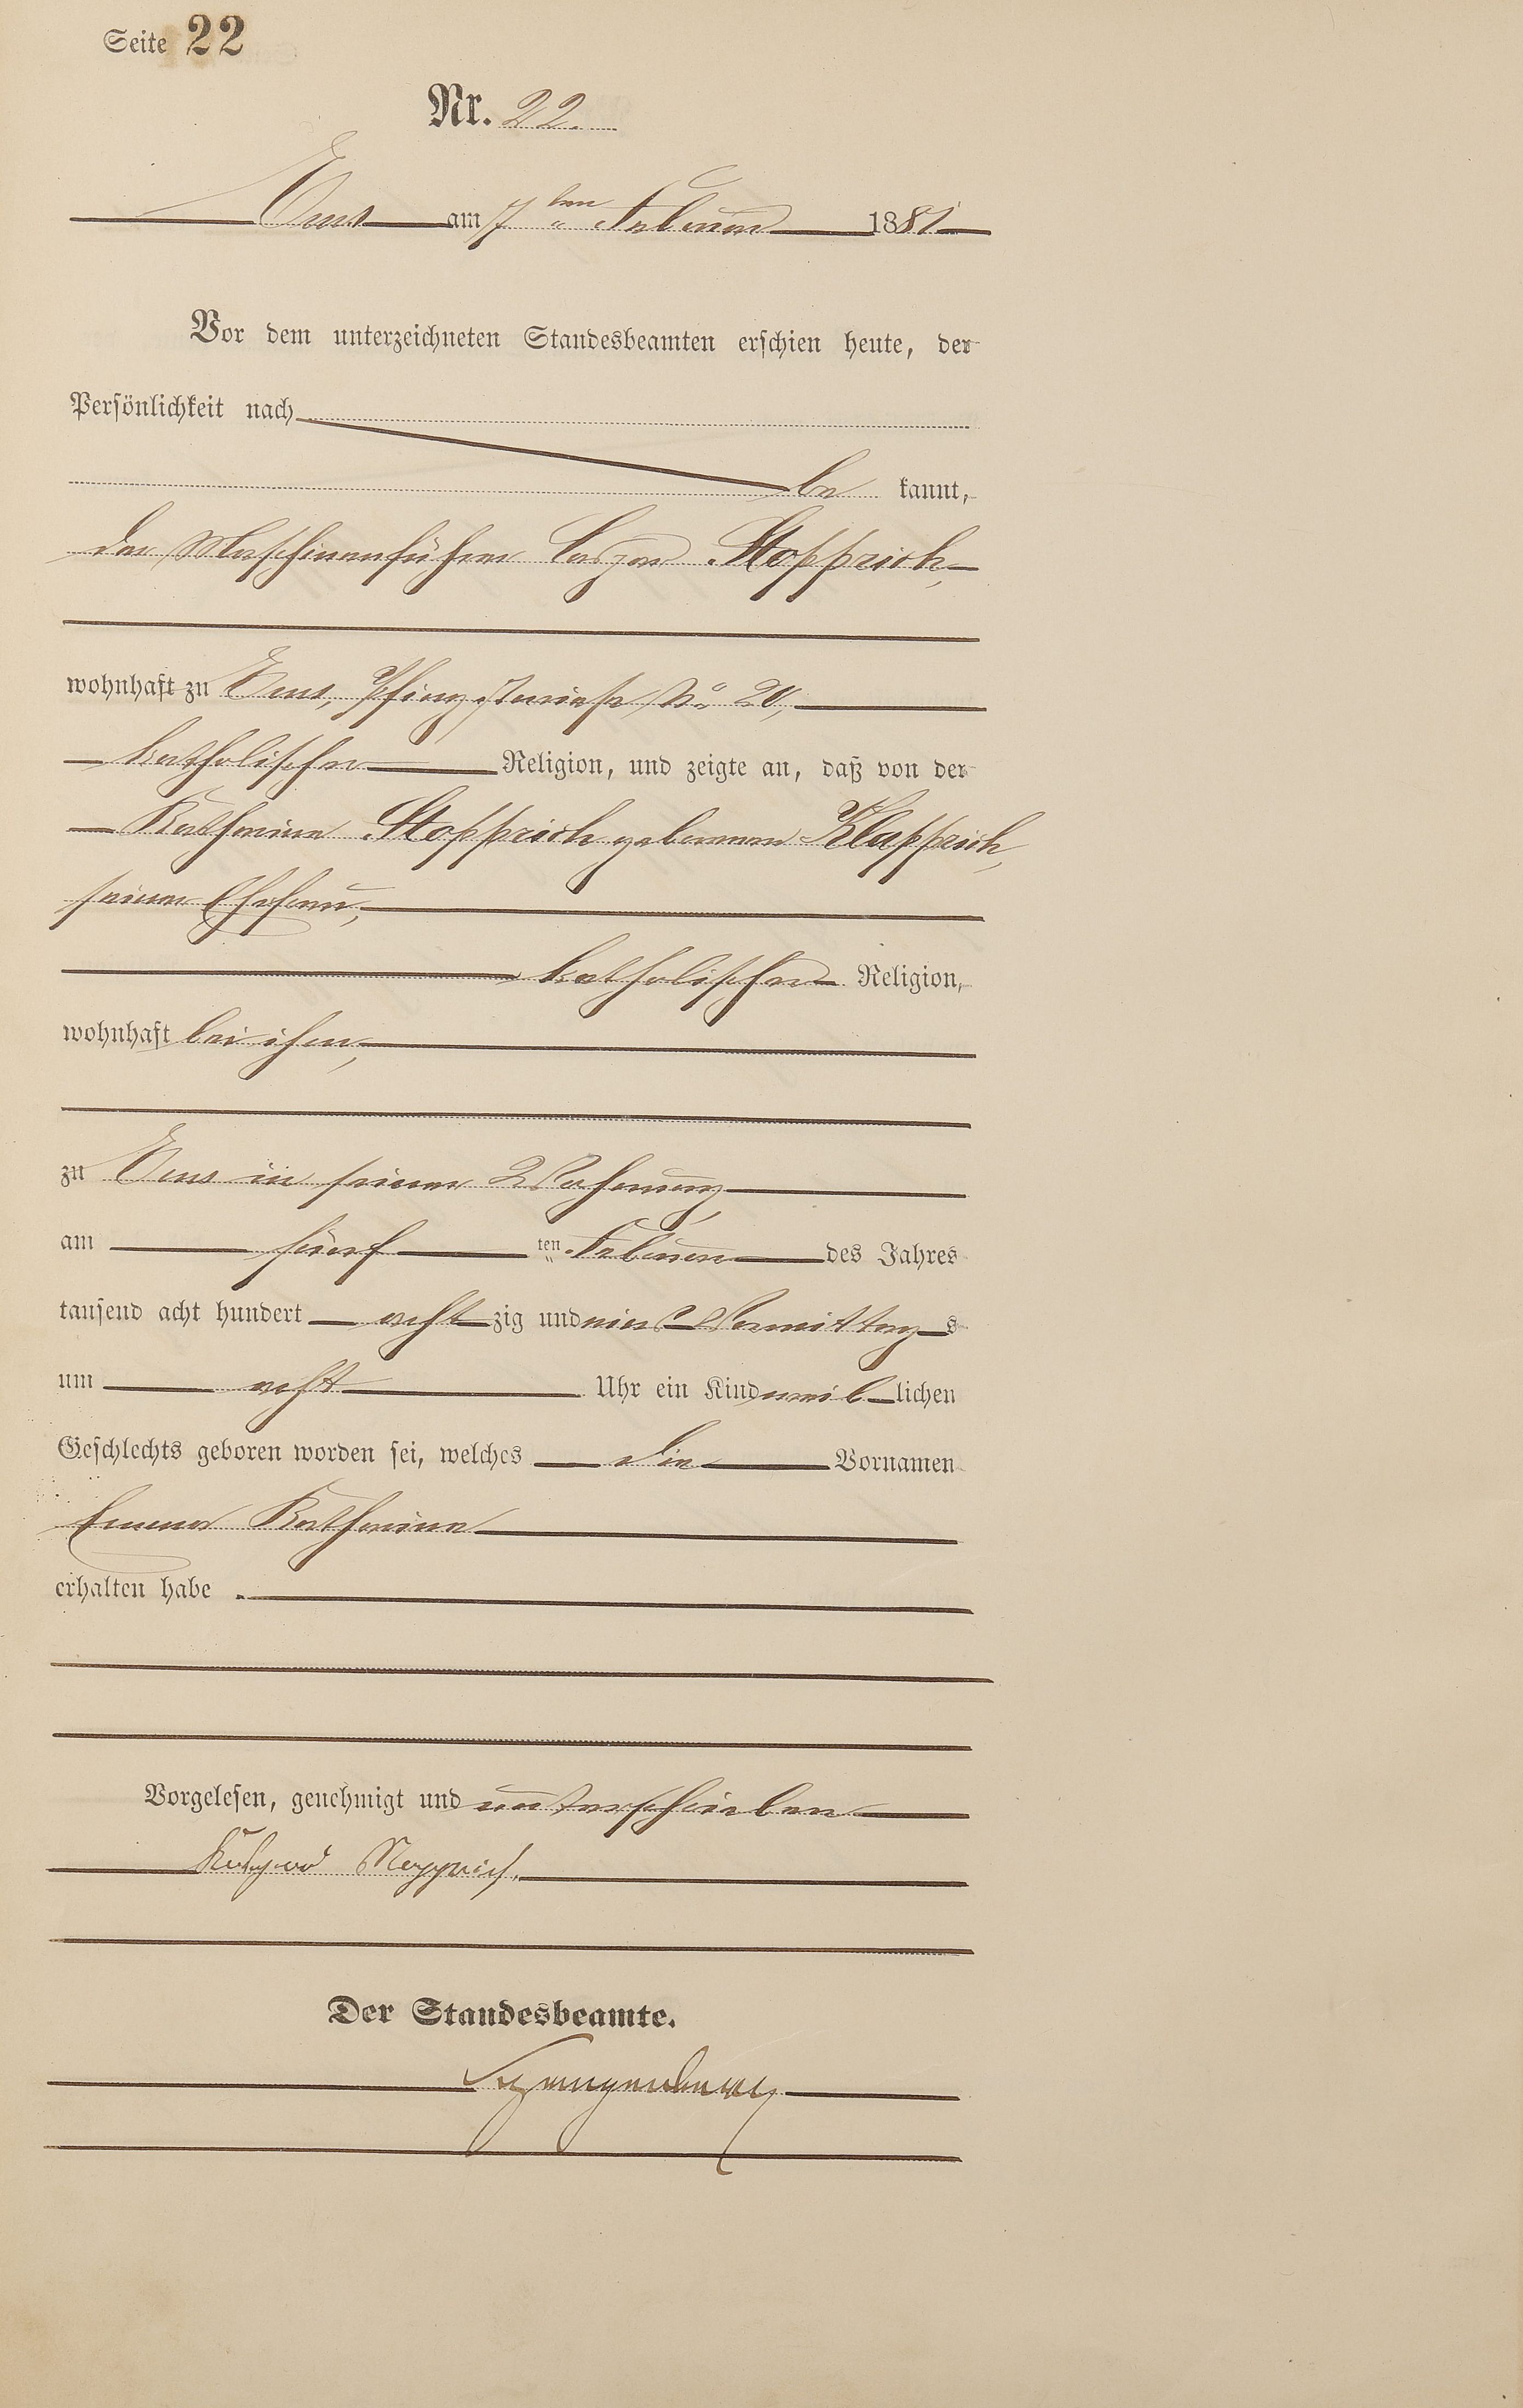 Seite 22
Nr. 22.
Ems am 7ten Februar 1881
Vor dem unterzeichneten Standesbeamten erschien heute, der
Persönlichkeit nach
be kannt,
der Maschinenführer Caspar Stopprich,
wohnhaft zu Ems, Pfingstwiese No 20,
katholischer Religion, und zeigte an, daß von der
Katharina Stopprich geborenen Klapprich,
seiner Ehefrau,
katholischer Religion,
wohnhaft bei ihm,
zu Ems in seiner Wohnung
am fünf ten Februar des Jahres
tausend acht hundert acht zig und eins Vormittag s
um acht Uhr ein Kind weib lichen
Geschlechts geboren worden sei, welches die Vornamen
Emma Katharina
erhalten habe.
Vorgelesen, genehmigt und unterschrieben
Kaspar Stopprich.
Der Standesbeamte.